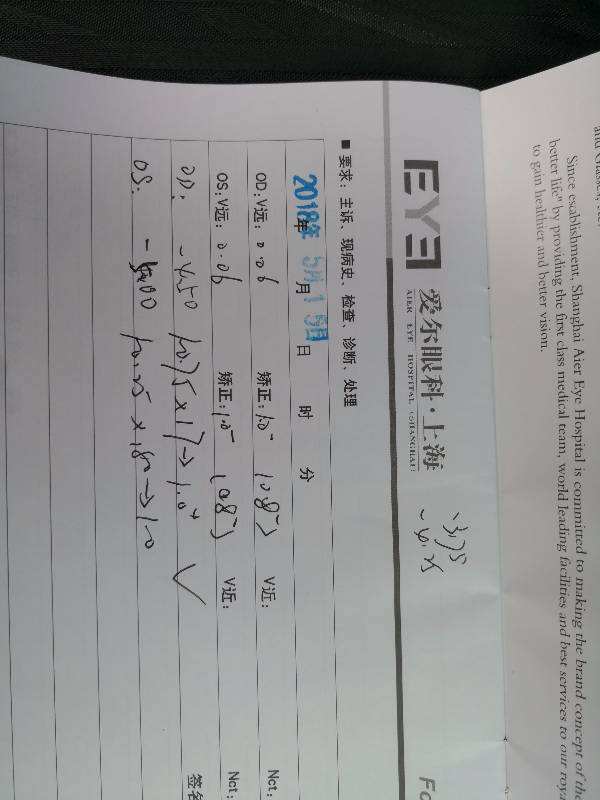 and Glasses, etc.
Since establishment, Shanghai Aier Eye Hospital is committed to making the brand concept of the
better life" by providing the first class medical team, world leading facilities and best services to our roya
to gain healthier and better vision.
EYE 爱尔眼科·上海
AIER EYE HOSPITAL (SHANGHAI)
-3.75
-4.25
■ 要求: 主诉、现病史、检查、诊断、处理
2018年 5月15日 时 分
OD:V远: 0.06 矫正: 1.0⁻ (08⁻) V近: Nct:
OS:V远: 0.06 矫正: 1.0⁻ (08⁻) V近: Nct:
OD: -4.50 /-0.75×17→1.0⁺ ✓
OS: -4.00 /-0.25×180→1.0